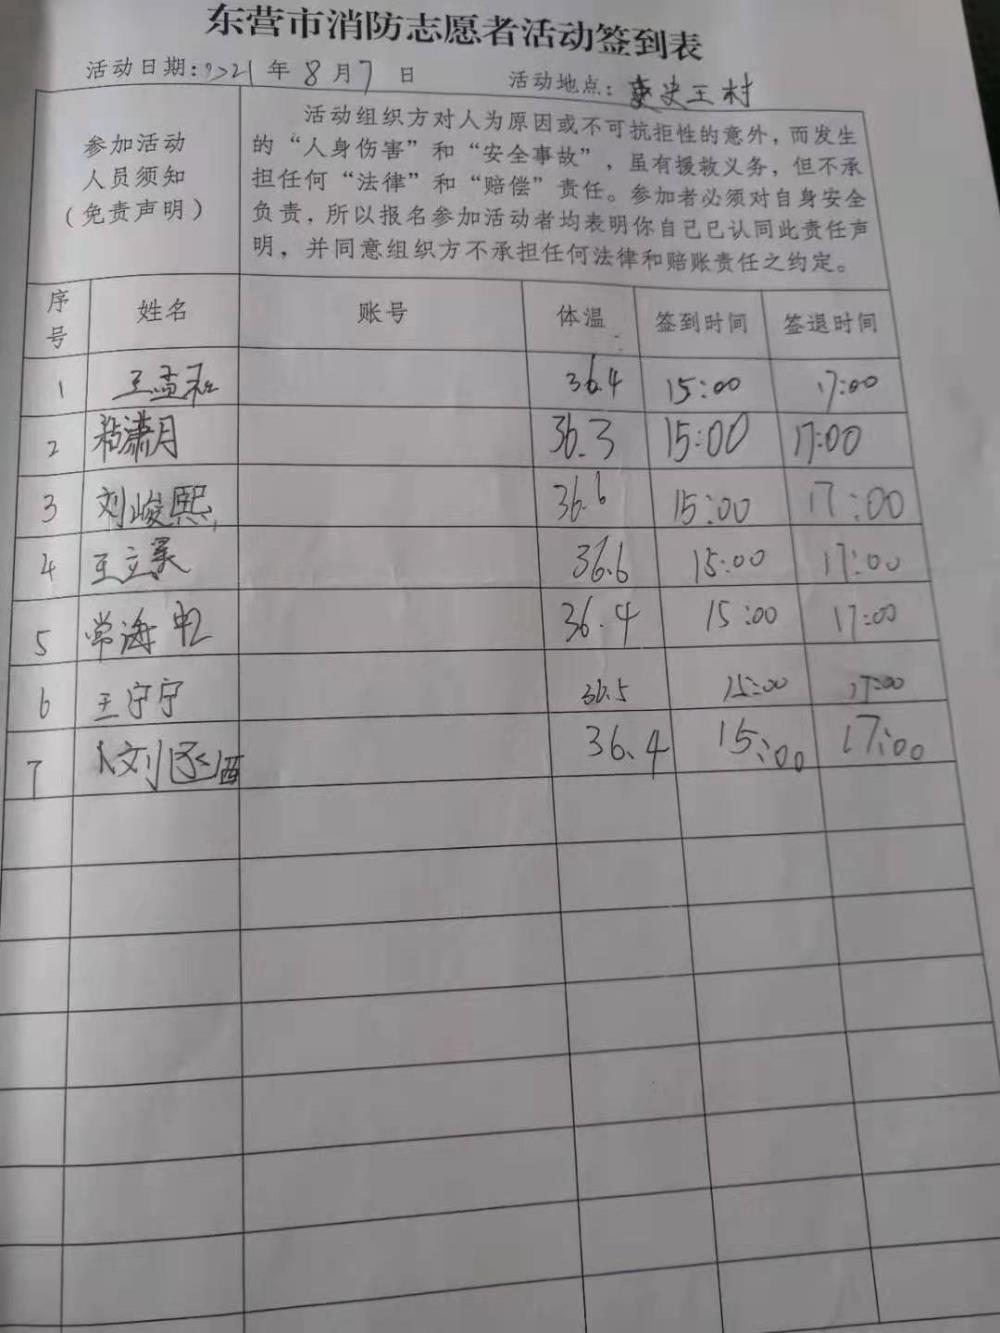 东营市消防志愿者活动签到表
活动日期:2021年8月7日 活动地点:史王村
参加活动
人员须知
(免责声明)
活动组织方对人为原因或不可抗拒性的意外，而发生
的“人身伤害”和“安全事故”，虽有援救义务，但不承
担任何“法律”和“赔偿”责任。参加者必须对自身安全
负责，所以报名参加活动者均表明你自己已认同此责任声
明，并同意组织方不承担任何法律和赔账责任之约定。
序号 姓名 账号 体温 签到时间 签退时间
1 王孟 36.4 15:00 17:00
2 潇月 36.3 15:00 17:00
3 刘峻熙 36.6 15:00 17:00
4 王立 36.6 15:00 17:00
5 常海 36.4 15:00 17:00
6 王宁宁 36.5 15:00 17:00
7 刘 36.4 15:00 17:00